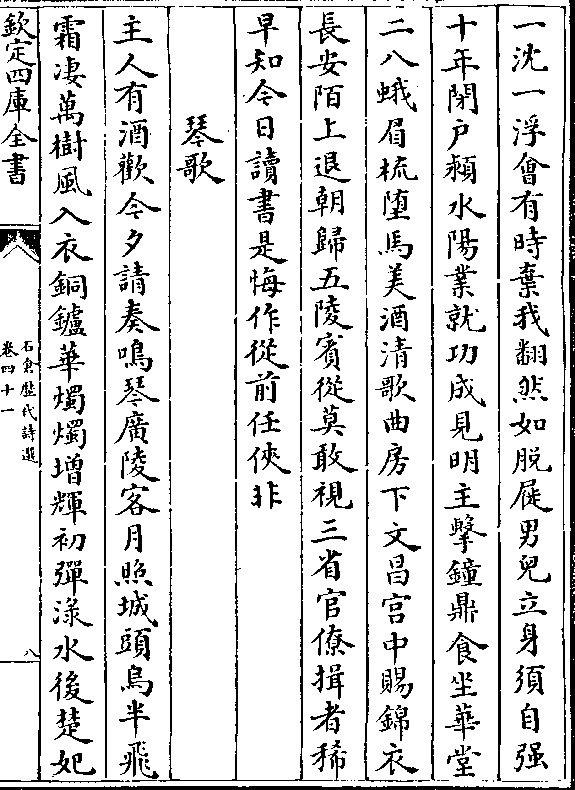 一沈一浮會有時棄我翻然如脫屣男兒立身須自强
十年閉戶潁水陽業就功成見明主擊鐘鼎食坐華堂
二八蛾眉梳墮馬美酒清歌曲房下文昌宫中賜錦衣
長安陌上退朝歸五陵賓從莫敢視三省官僚揖者稀
早知今日讀書是悔作從前任俠非
琴歌
主人有酒歡今夕請奏鳴琴廣陵客月照城頭烏半飛
霜凄萬樹風入衣銅鑪華燭燭增輝初彈渌水後楚妃
欽定四庫全書
石倉歷代詩選
卷四十一
八